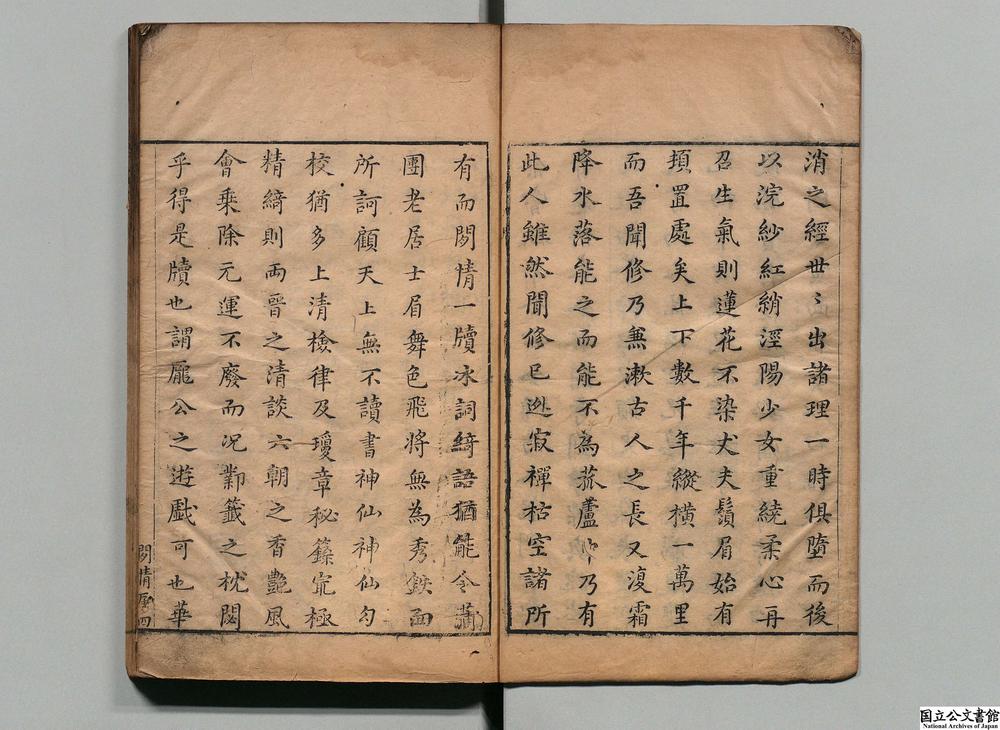 消之經世〻出諸理一時俱墮而後
以浣紗紅綃涇陽少女重繞柔心再
召生氣則蓮花不染丈夫鬚眉始有
頓置處矣上下數千年縱橫一萬里
而吾聞修乃兼漱古人之長又復霜
降水落能之而能不為菰蘆中乃有
此人雖然聞修已逃寂禪枯空諸所
有而閒情一牘冰詞綺語猶能令蒲
團老居士眉舞色飛將無為秀鉄面
所訶顧天上無不讀書神仙神仙勾
校猶多上清檢律及瓊章秘籙寃極
精綺則兩晉之清談六朝之香艷風
會乘除元運不廢而况鄴籤之枕閟
乎得是牘也謂龐公之遊戲可也華
閒情序 四
国立公文書館
National Archives of Japan